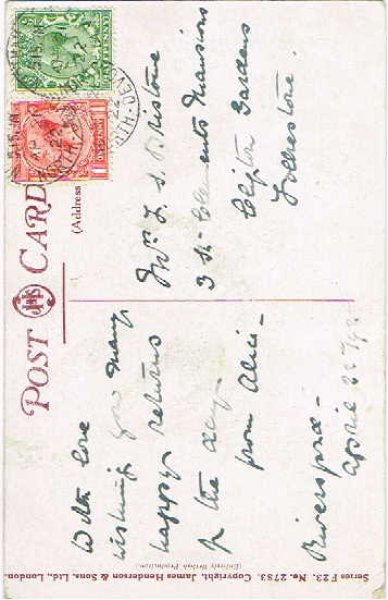 POST CARD
(Address
With love
wishing you many
happy returns
of the day
from Alice -
April 22
Mrs L. S.
3 St Clements Mansions
Clifton Gardens
Folkestone
(Entirely British Production)
Series F23. No. 2783. Copyright, James Henderson & Sons, Ltd., London.